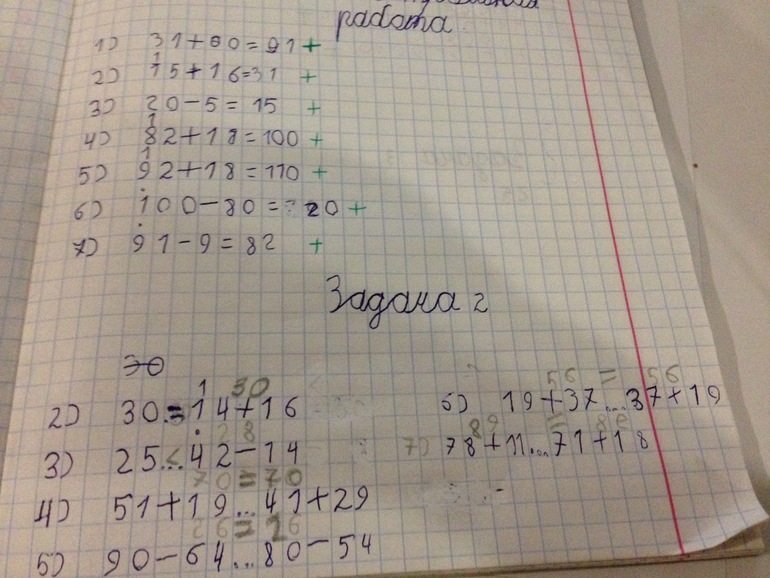 работа
1) 31+60=91 +
2) 15+16=31 +
3) 20-5=15 +
4) 82+18=100 +
5) 92+18=110 +
6) 100-80=20 +
7) 91-9=82 +
Задача 2
30
2) 30=14+16
3) 25...42-14
4) 51+19...41+29
5) 90-64...80-54
6) 19+37...37+19
7) 78+11...71+18